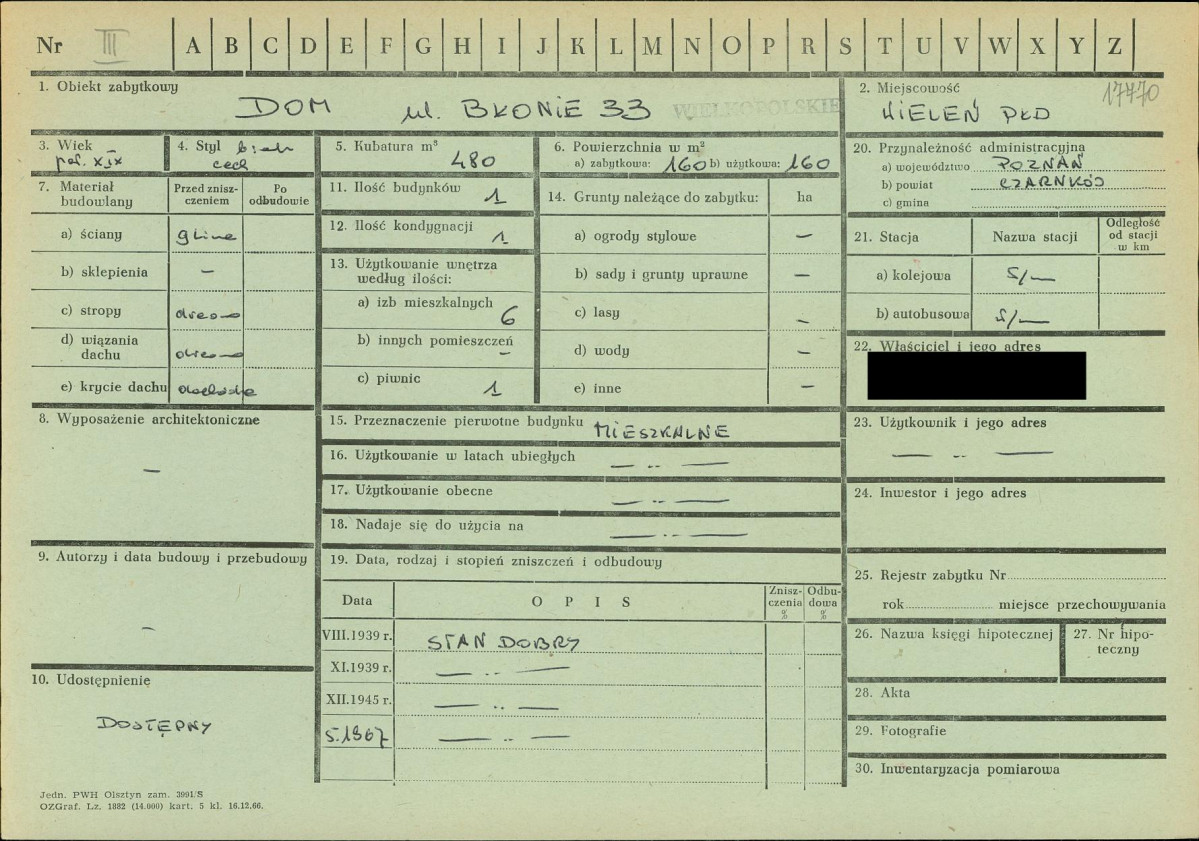 Nr III A B C D E F G H I J K L M N O P R S T U V W X Y Z
1. Obiekt zabytkowy
DOM ul. BŁONIE 33
WIELKOPOLSKIE
2. Miejscowość
17470
WIELEŃ PŁD
3. Wiek
poł. XIX
4. Styl b. ich
cech
5. Kubatura m³
480
6. Powierzchnia w m²
a) zabytkowa: 160 b) użytkowa: 160
20. Przynależność administracyjna
a) województwo POZNAŃ
b) powiat CZARNKÓW
c) gmina
7. Materiał budowlany
Przed zniszczeniem
Po odbudowie
a) ściany glina
b) sklepienia —
c) stropy drewno
d) wiązania dachu drewno
e) krycie dachu dachówka
11. Ilość budynków 1
12. Ilość kondygnacji 1
13. Użytkowanie wnętrza
według ilości:
a) izb mieszkalnych 6
b) innych pomieszczeń —
c) piwnic 1
14. Grunty należące do zabytku: ha
a) ogrody stylowe —
b) sady i grunty uprawne —
c) lasy —
d) wody —
e) inne —
21. Stacja
Nazwa stacji
Odległość
od stacji
w km
a) kolejowa
b) autobusowa
22. Właściciel i jego adres
8. Wyposażenie architektoniczne
—
15. Przeznaczenie pierwotne budynku MIESZKALNE
16. Użytkowanie w latach ubiegłych — .. —
17. Użytkowanie obecne — .. —
18. Nadaje się do użycia na — .. —
23. Użytkownik i jego adres
— .. —
24. Inwestor i jego adres
9. Autorzy i data budowy i przebudowy
—
19. Data, rodzaj i stopień zniszczeń i odbudowy
Data
O P I S
Znisz-
czenia
%
Odbu-
dowa
%
VIII.1939 r. STAN DOBRY
XI.1939 r. — .. —
XII.1945 r. — .. —
5.1967 — .. —
25. Rejestr zabytku Nr
rok miejsce przechowywania
26. Nazwa księgi hipotecznej
27. Nr hipo-
teczny
28. Akta
29. Fotografie
30. Inwentaryzacja pomiarowa
10. Udostępnienie
DOSTĘPNY
Jedn. PWH Olsztyn zam. 3991/S
OZGraf. Lz. 1882 (14.000) kart. 5 kl. 16.12.66.